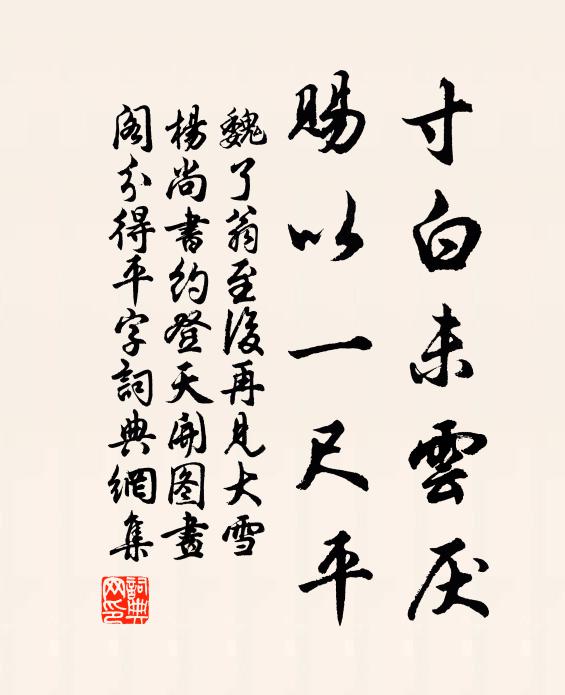 寸白未雲厌
赐以一尺平
魏了翁至後再見大雪
楊尚書約登天開图畫
阁分得平字詞典網集
詞典网印